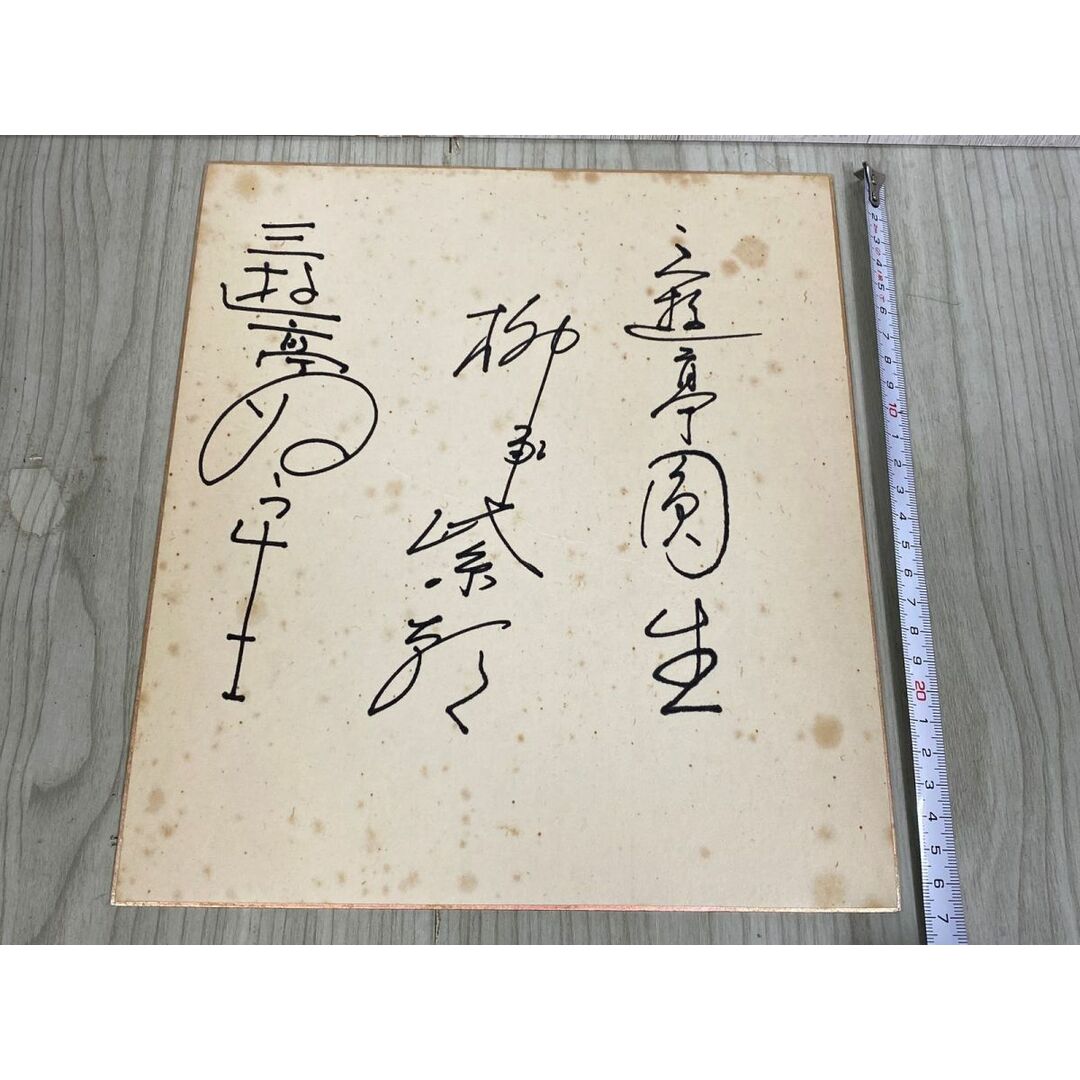 三遊亭圓生
柳家紫朝
三遊亭ぬう生
2 3 4 5 6 7 8 9 10 1 2 3 4 5 6 7 8 9 20 1 2 3 4 5 6 7